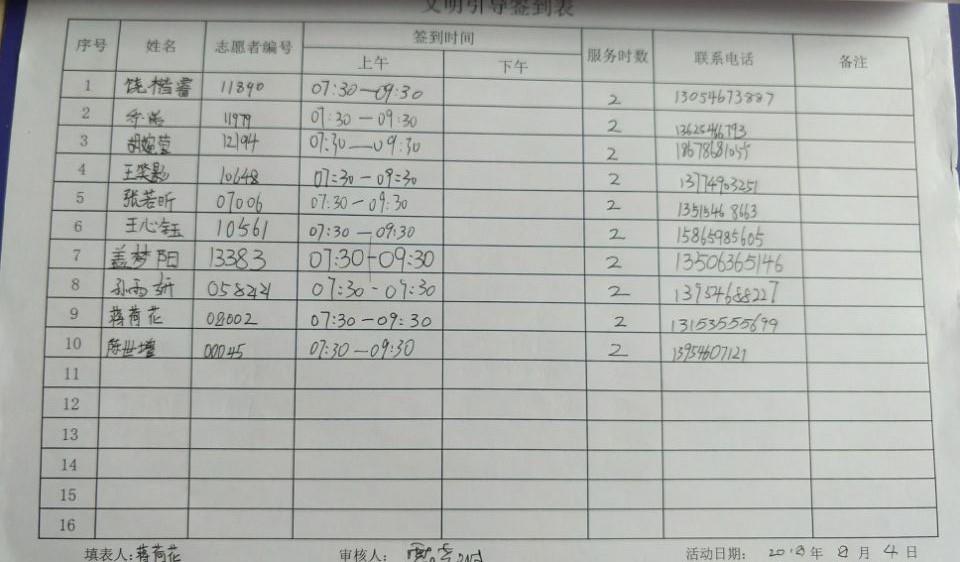 文明引导签到表
序号 姓名 志愿者编号 签到时间 服务时数 联系电话 备注
上午 下午
1 饶楷睿 11890 07:30—09:30 2 13054673887
2 11979 07:30—09:30 2 13625466793
3 胡媗莹 12194 07:30—09:30 2 18678681055
4 王笑影 10648 07:30—09:30 2 13774903251
5 张若昕 07006 07:30-09:30 2 13515468663
6 王心钰 10561 07:30—09:30 2 15865985605
7 盖梦阳 13383 07:30-09:30 2 13506365146
8 孙雨妍 05824 07:30-09:30 2 13954688227
9 蒋荷花 08002 07:30—09:30 2 13153555699
10 陈世增 00045 07:30—09:30 2 13954607121
11
12
13
14
15
16
填表人:蒋荷花 审核人: 活动日期: 2018年 8月 4日